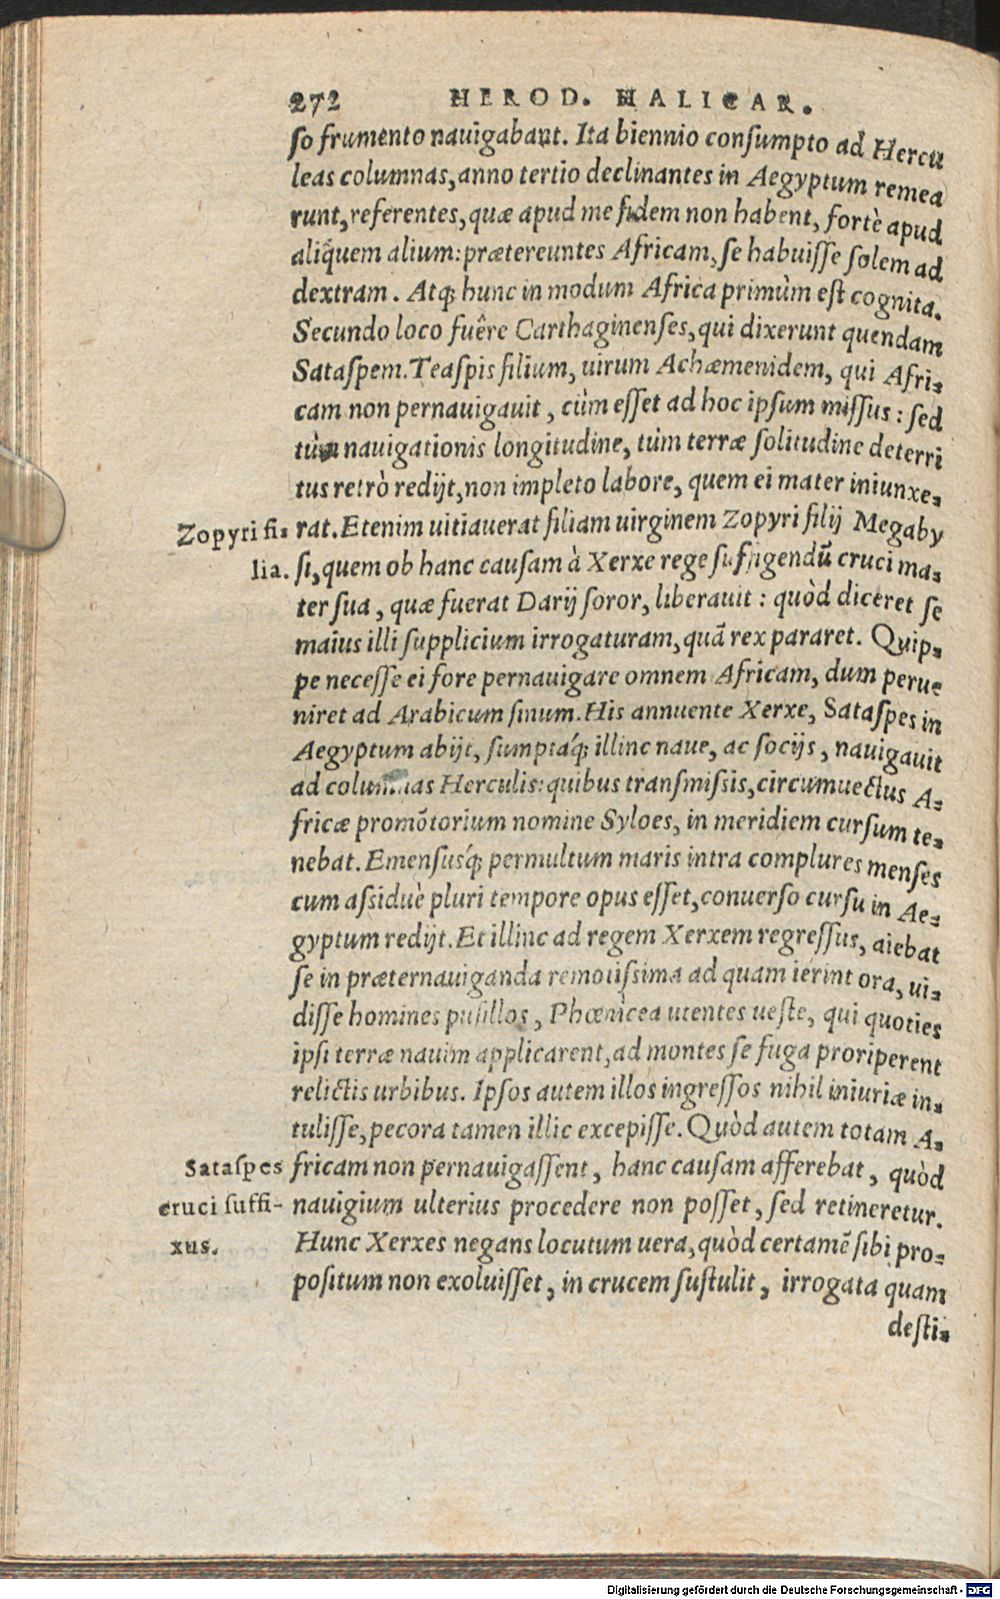 272 HEROD. HALICAR.
ſo frumento nauigabant. Ita biennio conſumpto ad Hercu
leas columnas, anno tertio declinantes in Aegyptum remea
runt, referentes, quæ apud me fidem non habent, fortè apud
aliquem alium: prætereuntes Africam, ſe habuiſſe ſolem ad
dextram. Atq; hunc in modum Africa primùm eſt cognita.
Secundo loco fuêre Carthaginenſes, qui dixerunt quendam
Sataſpem. Teaſpis filium, uirum Achæmenidem, qui Afri-
cam non pernauigauit, cùm eſſet ad hoc ipſum miſſus: ſed
tùm nauigationis longitudine, tùm terræ ſolitudine deterri
tus retrò redijt, non impleto labore, quem ei mater iniunxe-
Zopyri fi- rat. Etenim uitiauerat filiam uirginem Zopyri filij Megaby
lia. ſi, quem ob hanc cauſam à Xerxe rege ſuffigendũ cruci ma-
ter ſua, quæ fuerat Darij ſoror, liberauit: quòd diceret ſe
maius illi ſupplicium irrogaturam, quã rex pararet. Quip-
pe neceſſe ei fore pernauigare omnem Africam, dum perue
niret ad Arabicum ſinum. His annuente Xerxe, Sataſpes in
Aegyptum abijt, ſumptáq; illinc naue, ac ſocijs, nauigauit
ad columnas Herculis: quibus tranſmiſsis, circumuectus A-
fricæ promõtorium nomine Syloes, in meridiem curſum te-
nebat. Emenſusq́; permultum maris intra complures menſes
cum aſsiduè pluri tempore opus eſſet, conuerſo curſu in Ae-
gyptum redijt. Et illinc ad regem Xerxem regreſſus, aiebat
ſe in præternauiganda remotiſsima ad quam ierint ora, ui-
diſſe homines puſillos, Phœnicea utentes ueſte, qui quoties
ipſi terræ nauim applicarent, ad montes ſe fuga proriperent
relictis urbibus. Ipſos autem illos ingreſſos nihil iniuriæ in-
tuliſſe, pecora tamen illic excepiſſe. Quòd autem totam A-
Sataſpes fricam non pernauigaſſent, hanc cauſam afferebat, quòd
cruci ſuffi- nauigium ulterius procedere non poſſet, ſed retineretur.
xus. Hunc Xerxes negans locutum uera, quòd certamẽ ſibi pro-
poſitum non exoluiſſet, in crucem ſuſtulit, irrogata quam
deſti-
Digitalisierung gefördert durch die Deutsche Forschungsgemeinschaft - DFG